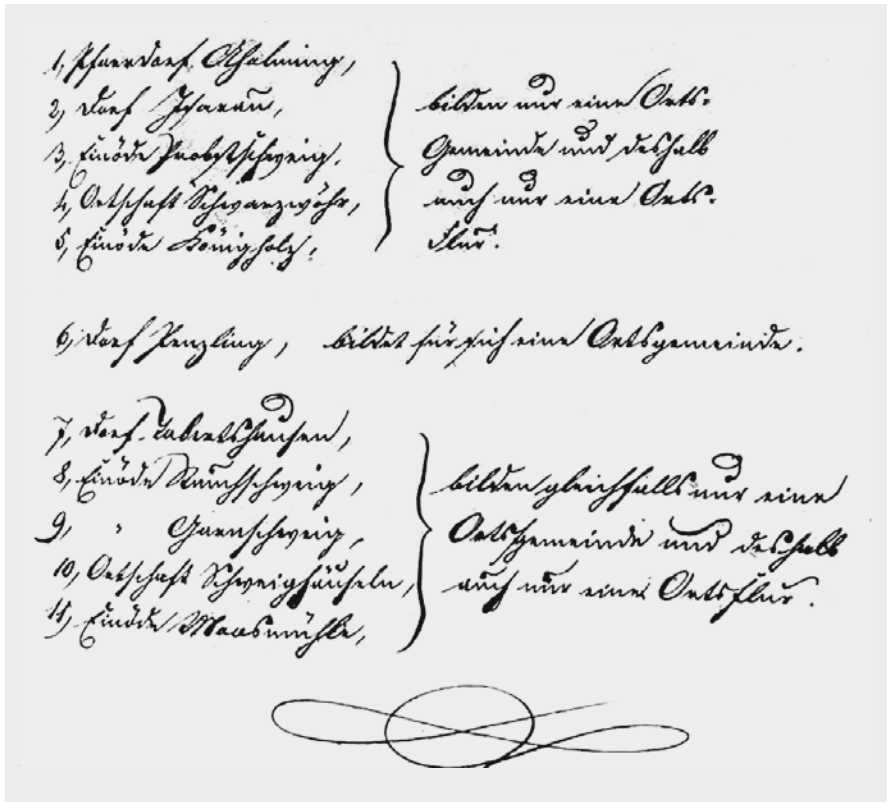 1, Pfarrdorf Aholming,
2, Dorf Isarau,
3, Einöde Probstschweig,
4, Ortschaft Schwarzwöhr,
5, Einöde Königholz,
bilden nur eine Orts-
Gemeinde und deshalb
auch nur eine Orts-
Flur.
6, Dorf Penzling, bildet für sich eine Ortsgemeinde.
7, Dorf Tabertshausen,
8, Einöde Rauchschweig,
9, " Garnschweig,
10, Ortschaft Schweighäuseln,
11, Einöde Maasmühle,
bilden gleichfalls nur eine
Ortsgemeinde und deshalb
auch nur eine Ortsflur.